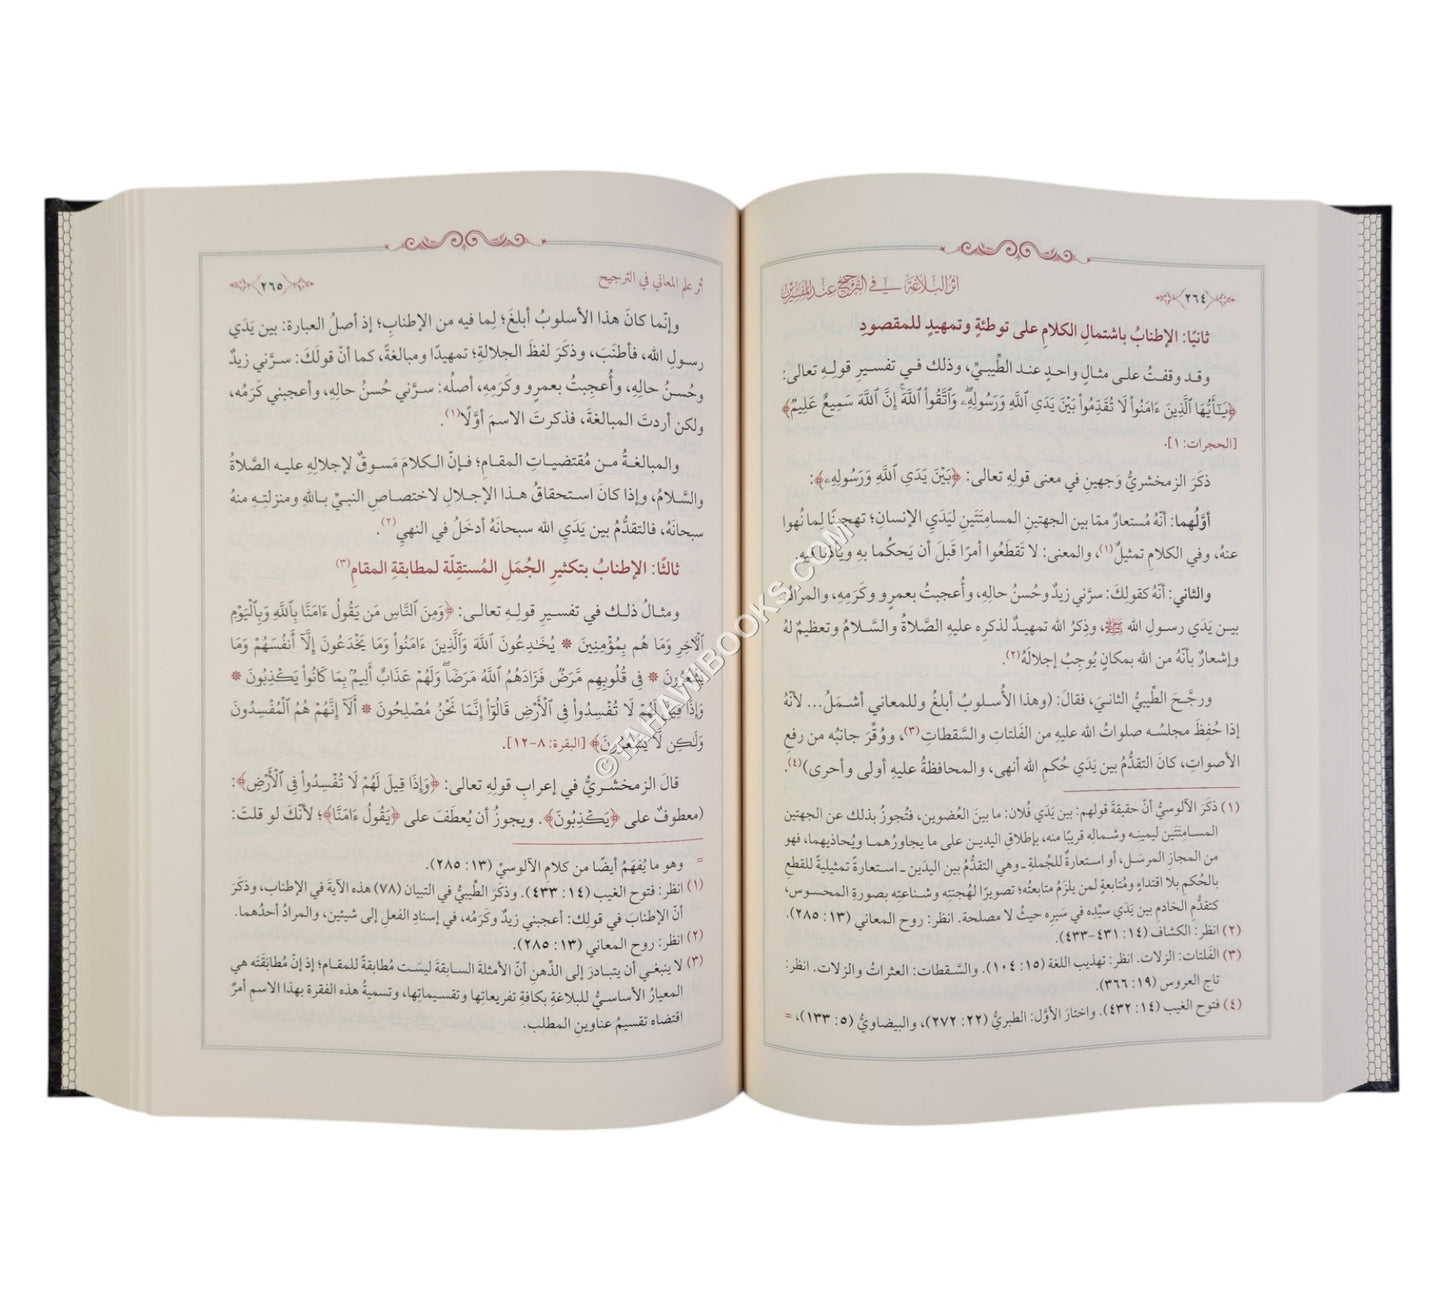 أثر البلاغة في الترجيح عند المفسرين
٢٦٤
ثانيًا: الإطنابُ باشتمالِ الكلامِ على توطئةٍ وتمهيدٍ للمقصودِ
وقد وقفتُ على مثالٍ واحدٍ عند الطِّيبيِّ، وذلك في تفسيرِ قولِهِ تعالى:
﴿يَٰٓأَيُّهَا ٱلَّذِينَ ءَامَنُواْ لَا تُقَدِّمُواْ بَيْنَ يَدَيِ ٱللَّهِ وَرَسُولِهِۦۖ وَٱتَّقُواْ ٱللَّهَۚ إِنَّ ٱللَّهَ سَمِيعٌ عَلِيمٌ﴾
[الحجرات: ١].
ذكَرَ الزمخشريُّ وَجهينِ في معنى قولِهِ تعالى: ﴿بَيْنَ يَدَيِ ٱللَّهِ وَرَسُولِهِۦ﴾:
أوَّلُهما: أنَّهُ مُستعارٌ ممّا بين الجهتينِ المسامِتَتَينِ ليَدَيِ الإنسانِ؛ تهجينًا لِما نُهوا
عنهُ، وفي الكلامِ تمثيلٌ(١)، والمعنى: لا تَقطَعُوا أمرًا قَبلَ أن يَحكُما بهِ ويأذنا فيه.
والثاني: أنّهُ كقولِكَ: سرَّني زيدٌ وحُسنُ حالِهِ، وأُعجبتُ بعمرٍو وكَرَمِهِ، والمرادُ:
بين يَدَي رسولِ الله ﷺ، وذِكرُ الله تمهيدٌ لذكرِه عليهِ الصَّلاةُ والسَّلامُ وتعظيمٌ لهُ
وإشعارٌ بأنّهُ من الله بمكانٍ يُوجِبُ إجلالَهُ(٢).
ورجَّحَ الطِّيبيُّ الثانيَ، فقالَ: (وهذا الأُسلوبُ أبلغُ وللمعاني أشمَلُ... لأنّهُ
إذا حُفِظَ مجلسُه صلواتُ الله عليهِ من الفَلَتاتِ والسَّقطاتِ(٣)، ووُقِّرَ جانبُه من رفعِ
الأصواتِ، كانَ التقدُّمُ بين يَدَي حُكمِ الله أنهى، والمحافظةُ عليهِ أولى وأحرى)(٤).
(١) ذكَرَ الآلوسيُّ أنّ حقيقةَ قولهم: بين يَدَي فُلان: ما بينَ العُضوين، فتُجوزُ بذلك عن الجهتين
المسامِتَتَين ليمينِه وشمالِه قريبًا منه، بإطلاقِ اليدين على ما يجاورُهما ويُحاذيهما، فهو
من المجازِ المرسَل، أو استعارةً للجُملةِ ـ وهي التقدُّمُ بين اليدَين ـ استعارةً تمثيليةً للقطعِ
بالحُكمِ بلا اقتداءٍ ومُتابعةٍ لمن يلزمُ متابعتُه؛ تصويرًا لهُجنتِه وشناعتِه بصورةِ المحسوس،
كتقدُّمِ الخادمِ بين يَدَي سيِّدِه في سَيرِه حيثُ لا مصلحة. انظر: روح المعاني (١٣: ٢٨٥).
(٢) انظر: الكشاف (١٤: ٤٣١-٤٣٣).
(٣) الفَلتات: الزلات. انظر: تهذيب اللغة (١٥: ١٠٤). والسَّقطات: العثراتُ والزلات. انظر:
تاج العروس (١٩: ٣٦٦).
(٤) فتوح الغيب (١٤: ٤٣٢). واختارَ الأوَّل: الطبريُّ (٢٢: ٢٧٢)، والبيضاويُّ (٥: ١٣٣)، =
أثر علم المعاني في الترجيح
٢٦٥
وإنّما كانَ هذا الأسلوبُ أبلغَ؛ لِما فيه من الإطنابِ؛ إذ أصلُ العبارة: بين يَدَي
رسولِ الله، فأطنَبَ، وذكَرَ لفظَ الجلالةِ؛ تمهيدًا ومبالغةً، كما أنّ قولَكَ: سرَّني زيدٌ
وحُسنُ حالِهِ، وأُعجِبتُ بعمرٍو وكَرَمِهِ، أصلُه: سرَّني حُسنُ حالِه، وأعجبني كَرَمُه،
ولكن أردتَ المبالغةَ، فذكرتَ الاسمَ أوَّلًا(١).
والمبالغةُ من مُقتضياتِ المقامِ؛ فإنّ الكلامَ مَسوقٌ لإجلالِهِ عليه الصَّلاةُ
والسَّلامُ، وإذا كانَ استحقاقُ هذا الإجلالِ لاختصاصِ النبيِّ باللهِ ومنزلتِهِ منهُ
سبحانَهُ، فالتقدُّمُ بين يَدَيِ الله سبحانَهُ أدخَلُ في النهيِ(٢).
ثالثًا: الإطنابُ بتكثيرِ الجُمَلِ المُستقِلّة لمطابقةِ المقامِ(٣)
ومثالُ ذلكَ في تفسيرِ قولِهِ تعالى: ﴿وَمِنَ ٱلنَّاسِ مَن يَقُولُ ءَامَنَّا بِٱللَّهِ وَبِٱلْيَوْمِ
ٱلْأَخِرِ وَمَا هُم بِمُؤْمِنِينَ * يُخَٰدِعُونَ ٱللَّهَ وَٱلَّذِينَ ءَامَنُواْ وَمَا يَخْدَعُونَ إِلَّآ أَنفُسَهُمْ وَمَا
يَشْعُرُونَ * فِى قُلُوبِهِم مَّرَضٌ فَزَادَهُمُ ٱللَّهُ مَرَضًاۖ وَلَهُمْ عَذَابٌ أَلِيمٌۢ بِمَا كَانُواْ يَكْذِبُونَ *
وَإِذَا قِيلَ لَهُمْ لَا تُفْسِدُواْ فِى ٱلْأَرْضِ قَالُوٓاْ إِنَّمَا نَحْنُ مُصْلِحُونَ * أَلَآ إِنَّهُمْ هُمُ ٱلْمُفْسِدُونَ
وَلَٰكِن لَّا يَشْعُرُونَ﴾ [البقرة: ٨-١٢].
قالَ الزمخشريُّ في إعرابِ قولِهِ تعالى: ﴿وَإِذَا قِيلَ لَهُمْ لَا تُفْسِدُواْ فِى ٱلْأَرْضِ﴾:
(معطوفٌ على ﴿يَكْذِبُونَ﴾. ويجوزُ أن يُعطَفَ على ﴿يَقُولُ ءَامَنَّا﴾؛ لأنّكَ لو قلتَ:
= وهو ما يُفهَمُ أيضًا من كلامِ الآلوسيِّ (١٣: ٢٨٥).
(١) انظر: فتوح الغيب (١٤: ٤٣٣). وذكَرَ الطِّيبيُّ في التبيان (٧٨) هذه الآيةَ في الإطناب، وذكَرَ
أنّ الإطنابَ في قولِك: أعجبني زيدٌ وكَرَمُه، في إسنادِ الفعلِ إلى شيئين، والمرادُ أحدُهما.
(٢) انظر: روح المعاني (١٣: ٢٨٥).
(٣) لا ينبغي أن يتبادرَ إلى الذِّهنِ أنّ الأمثلةَ السابقةَ ليسَت مُطابقةً للمقام؛ إذ إنّ مُطابَقتَه هي
المعيارُ الأساسيُّ للبلاغةِ بكافةِ تفريعاتِها وتقسيماتِها، وتسميةُ هذه الفقرة بهذا الاسمِ أمرٌ
اقتضاه تقسيمُ عناوينِ المطلب.
©TAHAWIBOOKS.COM